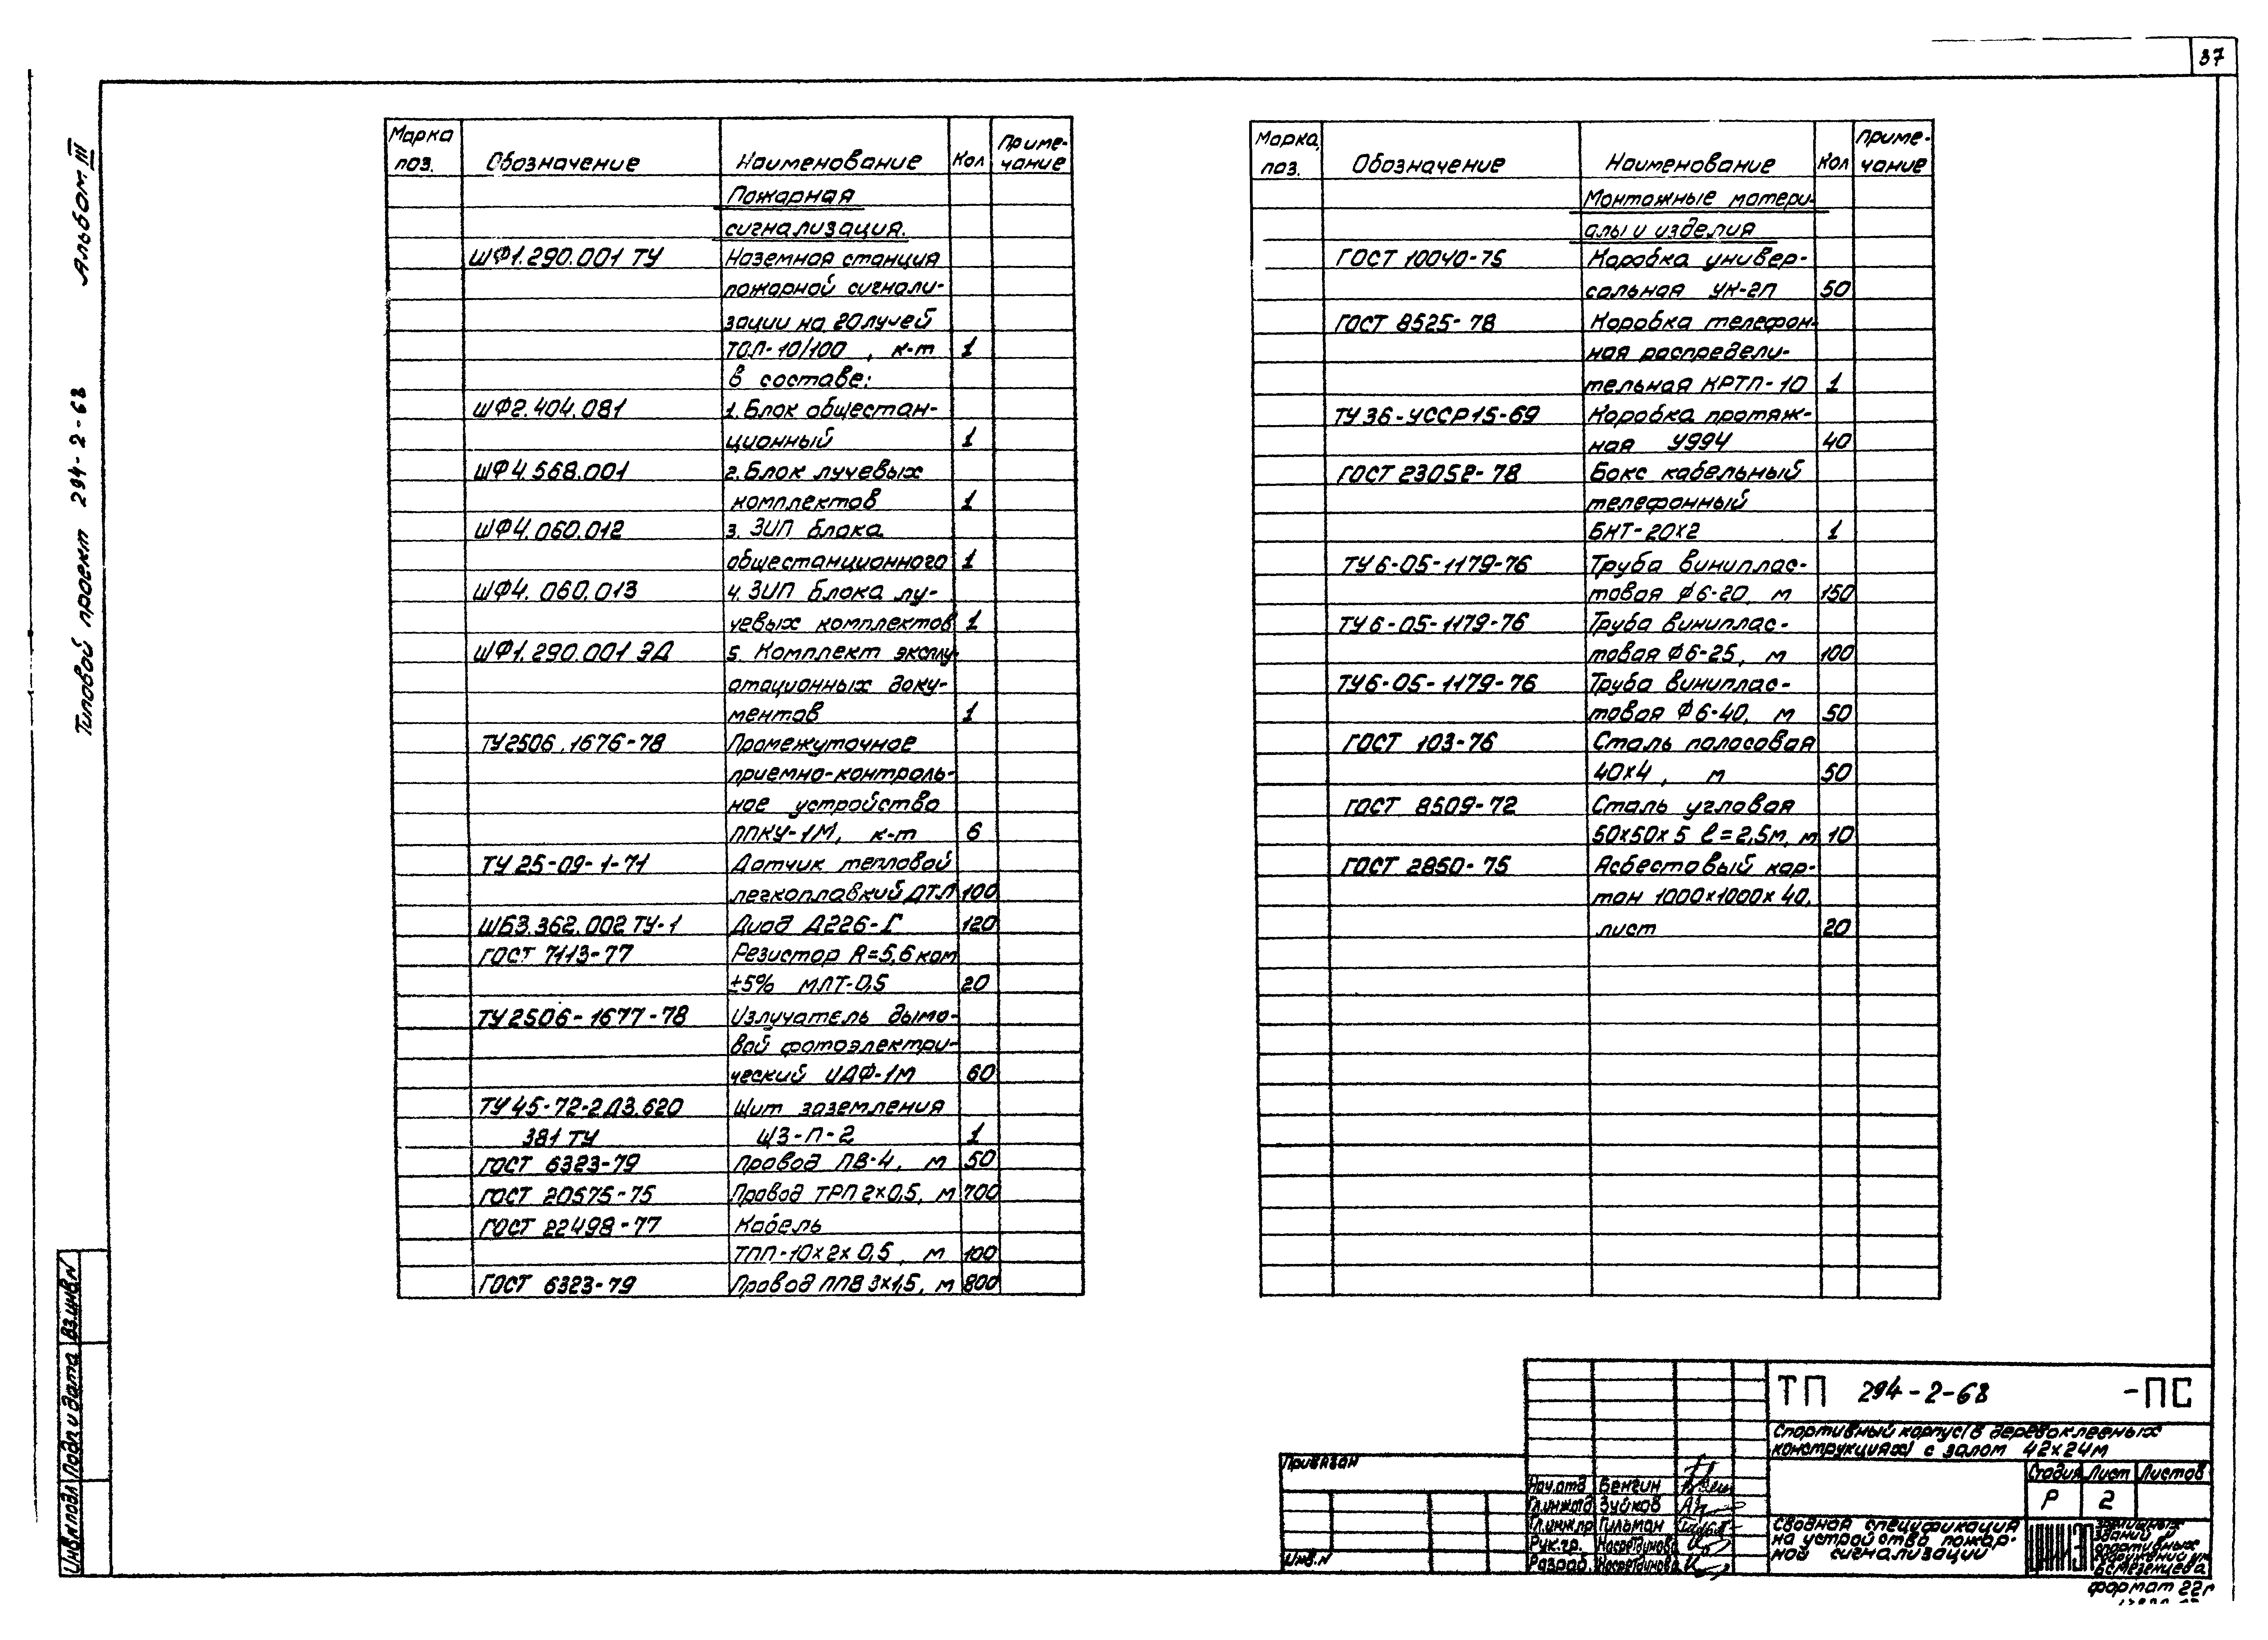 37
Альбом III
Типовой проект 294-2-68
Марка поз. Обозначение Наименование Кол Приме-чание
Пожарная
сигнализация.
ШФ1.290.001 ТУ Наземная станция
пожарной сигнали-
зации на 20 лучей
ТОЛ-10/100 , к-т 1
в составе:
ШФ2.404.081 1. Блок общестан-
ционный 1
ШФ4.568.001 2. Блок лучевых
комплектов 1
ШФ4.060.012 3. ЗИП блока
общестанционного 1
ШФ4.060.013 4. ЗИП блока лу-
чевых комплектов 1
ШФ1.290.001 ЭД 5. Комплект эксплу-
атационных доку-
ментов 1
ТУ2506.1676-78 Промежуточное
приемно-контроль-
ное устройство
ППКУ-1М, к-т 6
ТУ25-09-1-71 Датчик тепловой
легкоплавкий ДТЛ 100
ШБ3.362.002 ТУ-1 Диод Д226-Г 120
ГОСТ 7113-77 Резистор R=5,6 ком
±5% МЛТ-0,5 20
ТУ2506-1677-78 Излучатель дымо-
вой фотоэлектри-
ческий ИДФ-1М 60
ТУ45-72-2Д3.620 Щит заземления
381 ТУ ЩЗ-П-2 1
ГОСТ 6323-79 Провод ПВ-4, м 50
ГОСТ 20575-75 Провод ТРП 2х0,5, м 700
ГОСТ 22498-77 Кабель
ТПП-10х2х0,5, м 100
ГОСТ 6323-79 Провод ППВ 3х1,5, м 800
Марка, поз. Обозначение Наименование Кол Приме-чание
Монтажные матери-
алы и изделия
ГОСТ 10040-75 Коробка универ-
сальная УК-2П 50
ГОСТ 8525-78 Коробка телефон-
ная распредели-
тельная КРТП-10 1
ТУ36-УССР15-69 Коробка протяж-
ная У994 40
ГОСТ 23052-78 Бокс кабельный
телефонный
БКТ-20х2 1
ТУ6-05-1179-76 Труба виниплас-
товая Ф6-20, м 150
ТУ6-05-1179-76 Труба виниплас-
товая Ф6-25, м 100
ТУ6-05-1179-76 Труба виниплас-
товая Ф6-40, м 50
ГОСТ 103-76 Сталь полосовая
40х4, м 50
ГОСТ 8509-72 Сталь угловая
50х50х5 ℓ=2,5м, м 10
ГОСТ 2850-75 Асбестовый кар-
тон 1000х1000х40,
лист 20
Инв.№ подл Подп. и дата Вз.инв.N
Привязан
Инв.N
Нач.отд Бенгин
Гл.инж.отд Зуйков
Гл.инж.пр Гильман
Рук.гр. Насретдинова
Разраб. Насретдинова
ТП 294-2-68 -ПС
Спортивный корпус (в деревоклееных
конструкциях) с залом 42х24м
Стадия Лист Листов
Р 2
Сводная спецификация
на устройство пожар-
ной сигнализации
ЦНИИЭП
зрелищных
зданий и
спортивных
сооружений им.
Б.С.Мезенцева
формат 22г